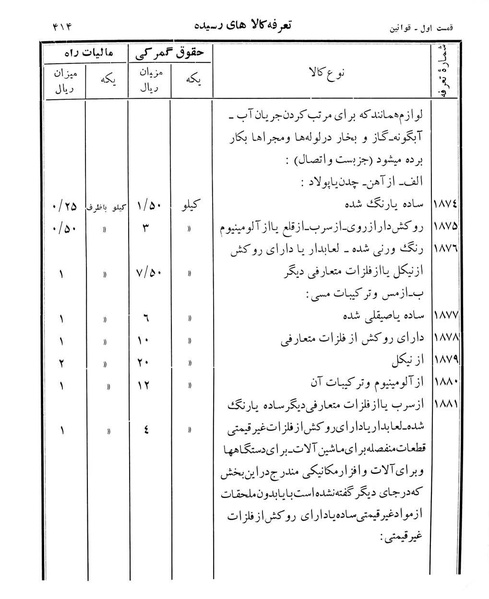 قسمت اول - قوانین
تعرفه کالا های رسیده
۴۱۴
شمارهٔ تعرفه
نوع کالا
حقوق گمرکی
مالیات راه
یکه
مزیان ریال
یکه
میزان ریال
لوازم همانند که برای مرتب کردن جریان آب ـ
آبگونه ـ گاز و بخار در لوله‌ها و مجراها بکار
برده میشود (جز بست و اتصال) :
الف ـ از آهن ـ چدن یا پولاد :
۱۸۷۴ ساده یا رنگ شده کیلو ۱/۵۰ کیلو باظرف ۰/۲۵
۱۸۷۵ روکش دار از روی ـ از سرب ـ از قلع یا از آلومینیوم » ۳ » ۰/۵۰
۱۸۷۶ رنگ ورنی شده ـ لعابدار یا دارای روکش
از نیکل یا از فلزات متعارفی دیگر » ۷/۵۰ » ۱
ب ـ از مس و ترکیبات مسی :
۱۸۷۷ ساده یا صیقلی شده » ۶ » ۱
۱۸۷۸ دارای روکش از فلزات متعارفی » ۱۰ » ۱
۱۸۷۹ از نیکل » ۲۰ » ۲
۱۸۸۰ از آلومینیوم و ترکیبات آن » ۱۲ » ۱
۱۸۸۱ از سرب یا از فلزات متعارفی دیگر ساده یا رنگ
شده ـ لعابدار یا دارای روکش از فلزات غیر قیمتی » ۴ » ۱
قطعات منفصله برای ماشین آلات ـ برای دستگاهها
و برای آلات و افزار مکانیکی مندرج در این بخش
که در جای دیگر گفته نشده است با یا بدون ملحقات
از مواد غیر قیمتی ساده یا دارای روکش از فلزات
غیر قیمتی :